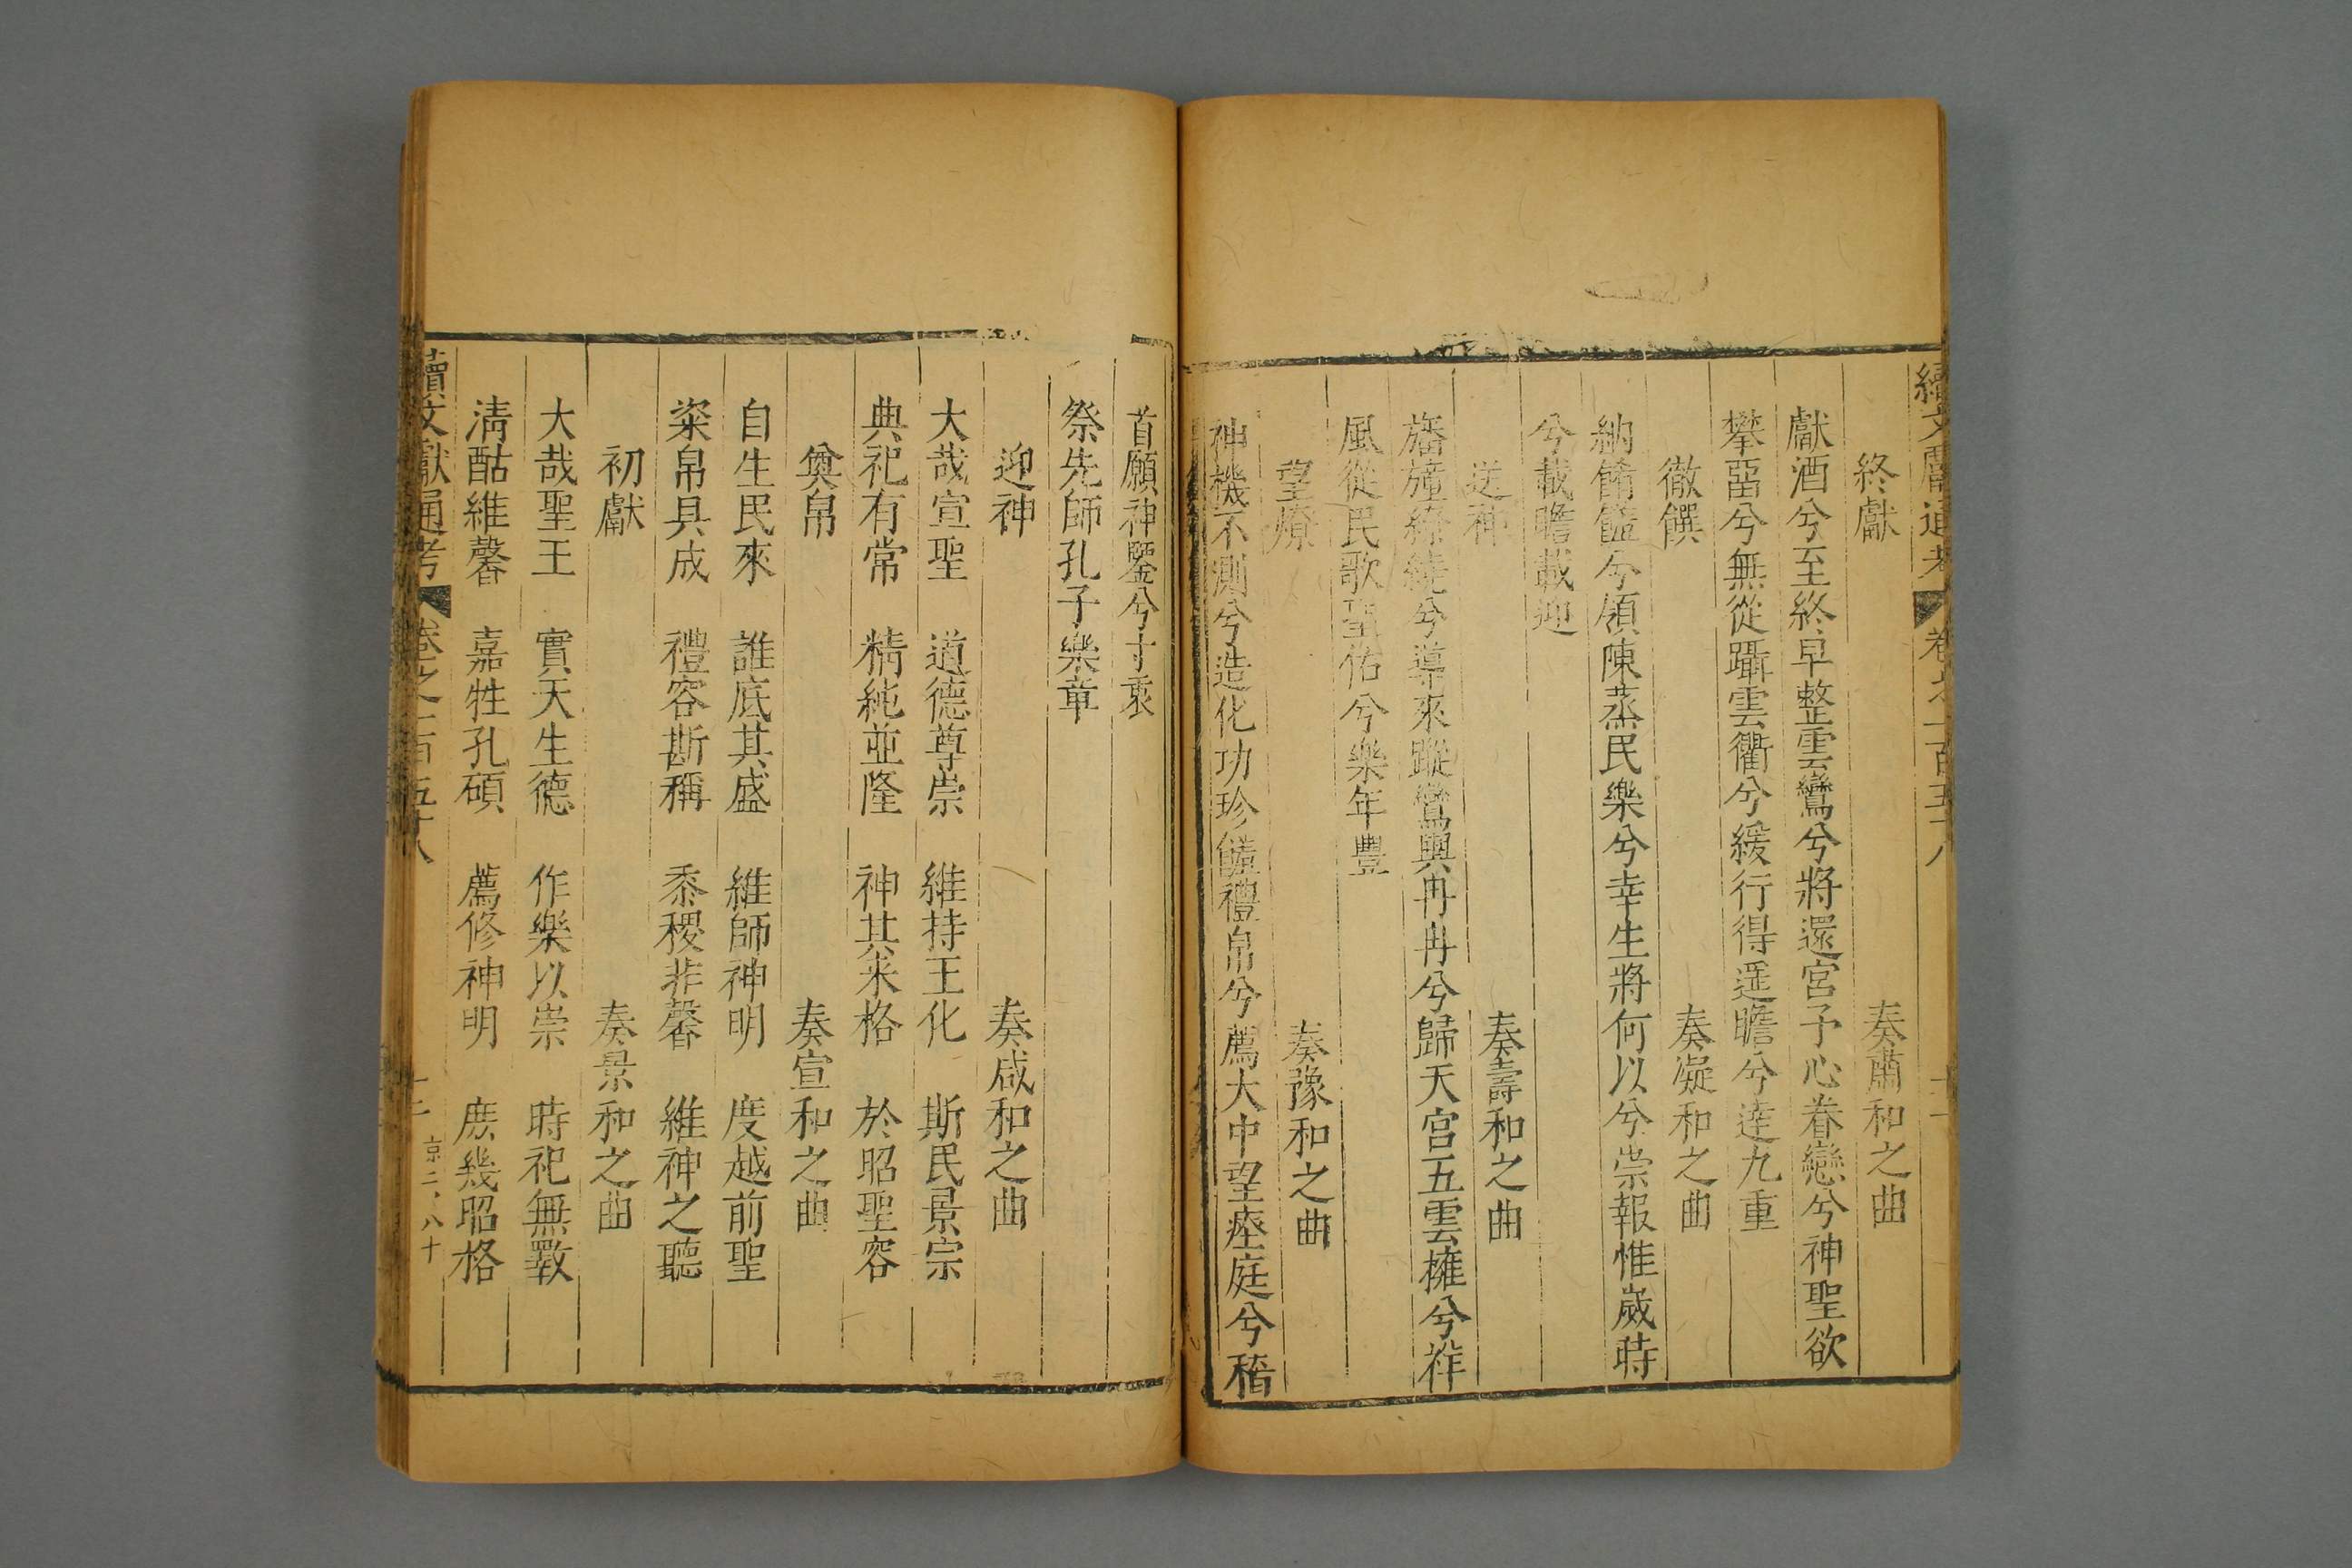 續文獻通考 卷之一百五十八
終獻 奏肅和之曲
獻酒兮至終早整雲鸞兮將還宮予心眷戀兮神聖欲
攀留兮無從躡雲衢兮緩行得遥瞻兮達九重
徹饌 奏凝和之曲
納餚饈兮領陳蒸民樂兮幸生將何以兮崇報惟嵗時
兮載瞻載迎
送神 奏壽和之曲
旛幢繚繞兮導來蹤鸞輿冉冉兮歸天宮五雲擁兮祥
風從民歌聖佑兮樂年豐
望燎 奏豫和之曲
神機不測兮造化功珍饈禮帛兮薦大中望瘞庭兮稽
首願神鑒兮寸衷
祭先師孔子樂章
迎神 奏咸和之曲
大哉宣聖 道德尊崇 維持王化 斯民景宗
典祀有常 精純並隆 神其来格 於昭聖容
奠帛 奏宣和之曲
自生民來 誰底其盛 維師神明 度越前聖
粢帛具成 禮容斯稱 黍稷非馨 維神之聽
初獻 奏景和之曲
大哉聖王 實天生德 作樂以崇 時祀無斁
淸酤維馨 嘉牲孔碩 薦修神明 庶幾昭格
續文獻通考 卷之一百五十八 十二 京二、八十